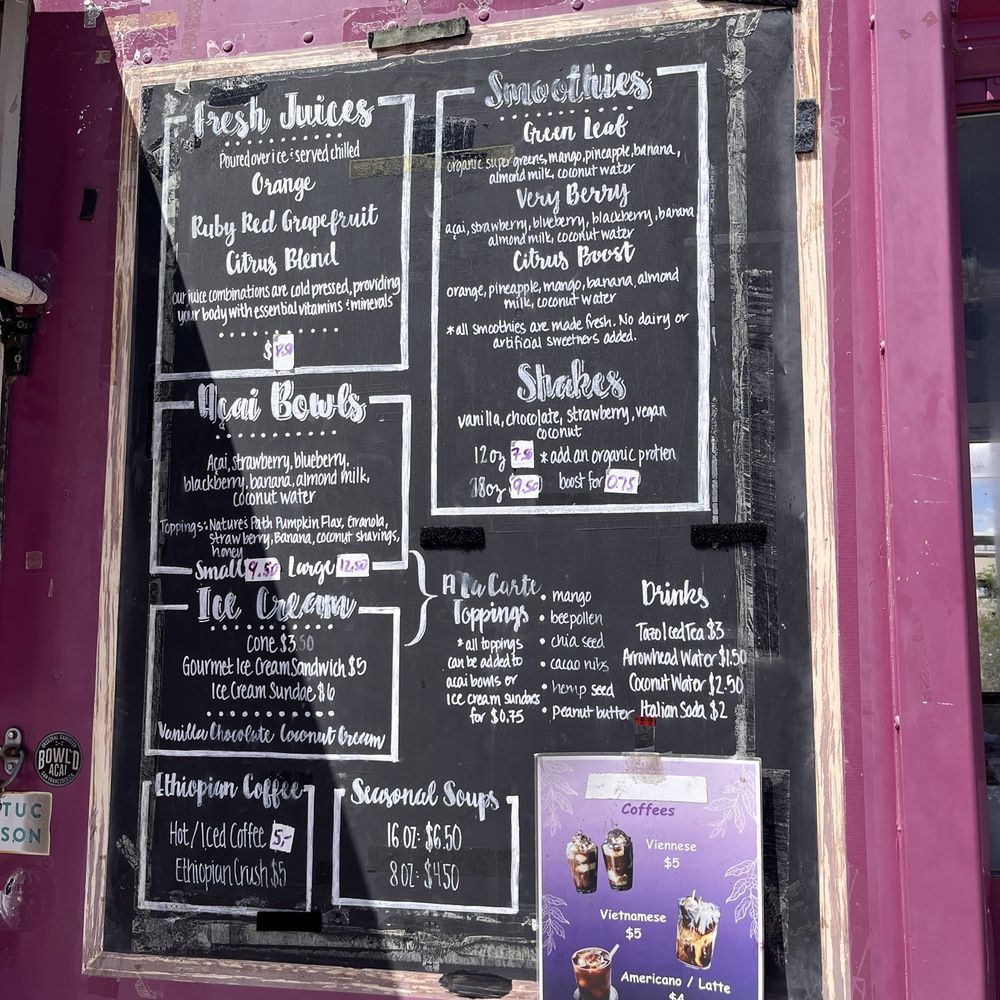 Fresh Juices
Poured over ice & served chilled
Orange
Ruby Red Grapefruit
Citrus Blend
our juice combinations are cold pressed, providing
your body with essential vitamins & minerals
$8.50
Açai Bowls
Açai, strawberry, blueberry,
blackberry, banana, almond milk,
coconut water
Toppings: Nature's Path Pumpkin Flax, Granola,
strawberry, Banana, coconut shavings,
honey
Small 9.50 Large 12.50
Ice Cream
Cone $3.50
Gourmet Ice Cream Sandwich $5
Ice Cream Sundae $6
Vanilla Chocolate Coconut Cream
Ethiopian Coffee
Hot/Iced Coffee 5,-
Ethiopian Crush $5
Seasonal Soups
16 oz: $6.50
8 oz: $4.50
Smoothies
Green Leaf
organic super greens, mango, pineapple, banana,
almond milk, coconut water
Very Berry
açai, strawberry, blueberry, blackberry, banana
almond milk, coconut water
Citrus Boost
orange, pineapple, mango, banana, almond
milk, coconut water
*all smoothies are made fresh. No dairy or
artificial sweetners added.
Shakes
vanilla, chocolate, strawberry, vegan
coconut
12oz 7.50 *add an organic protien
18oz 9.50 boost for 0.75
A La Carte
Toppings
*all toppings
can be added to
acai bowls or
ice cream sundaes
for $0.75
• mango
• beepollen
• chia seed
• cacao nibs
• hemp seed
• Peanut butter
Drinks
Tazo Iced Tea $3
Arrowhead Water $1.50
Coconut Water $2.50
Italian Soda $2
Coffees
Viennese
$5
Vietnamese
$5
Americano / Latte
$4
BOWL'D
ACAI
SAN FRANCISCO, CA
TUC
SON